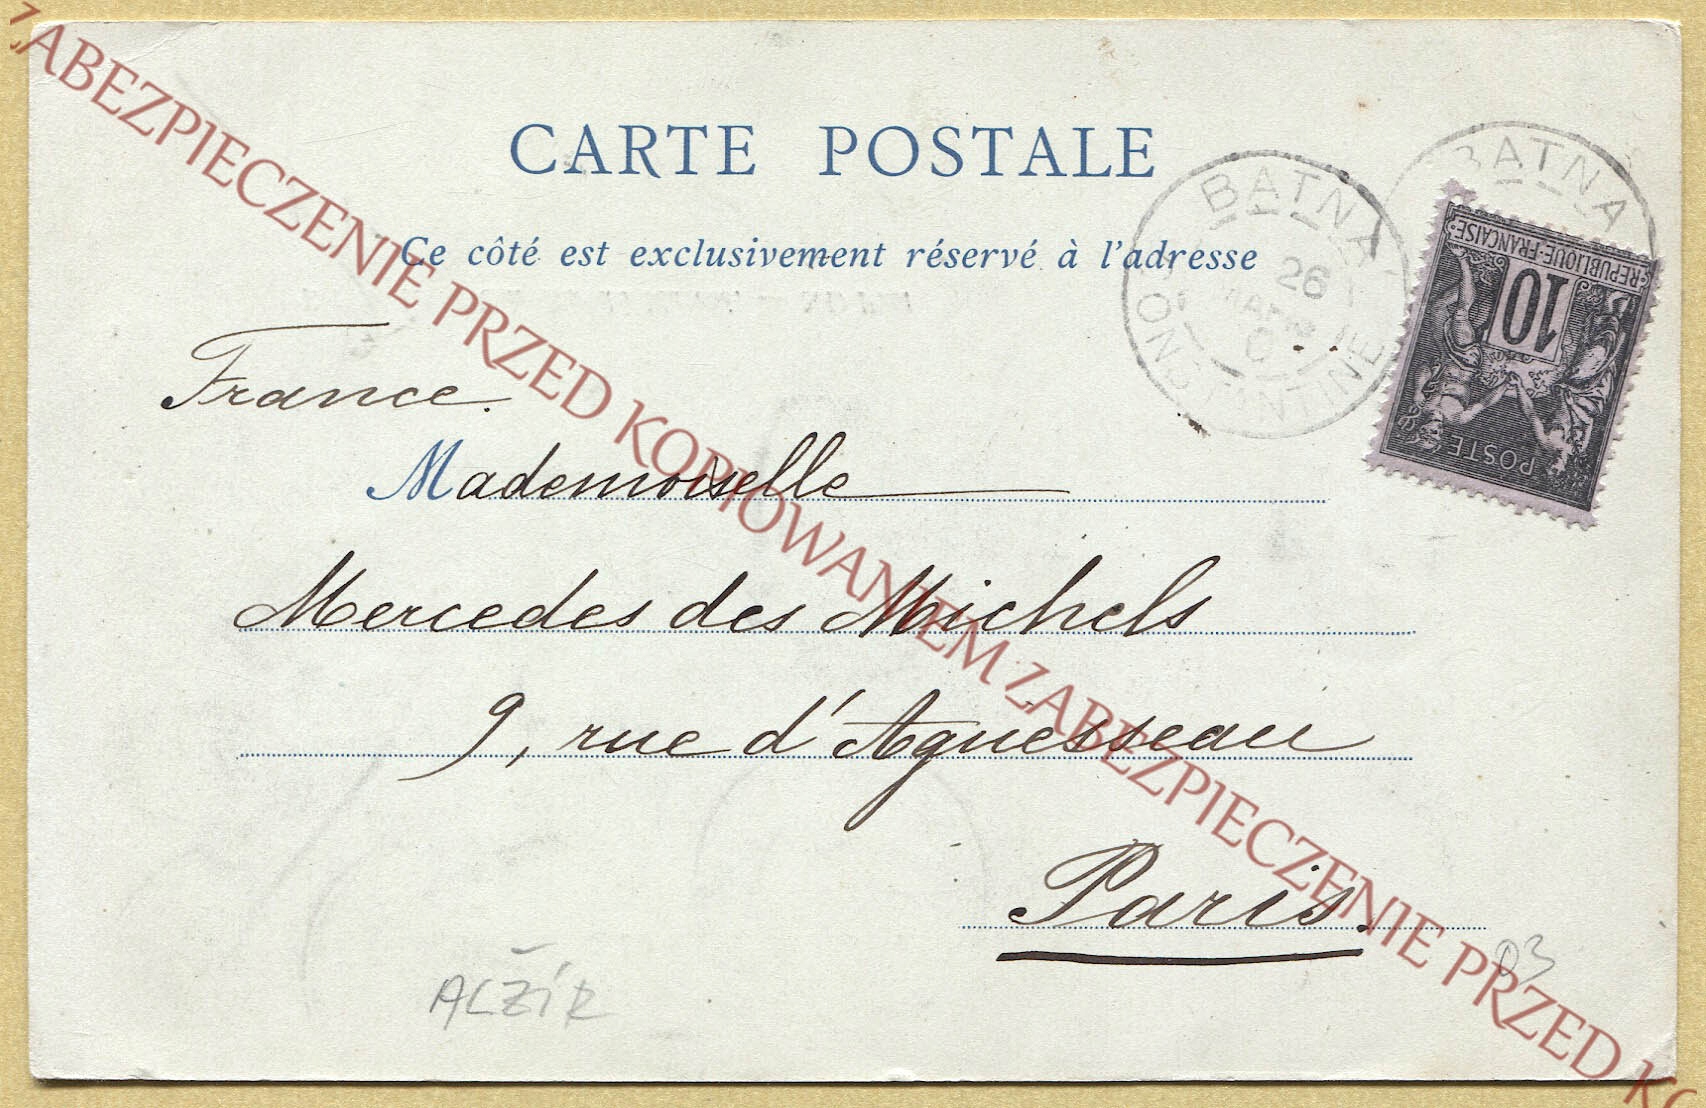 CARTE POSTALE
Ce côté est exclusivement réservé à l'adresse
BATNA
26
MARS
CONSTANTINE
BATNA
REPUBLIQUE·FRANÇAISE
10
POSTE
France.
Mademoiselle
Mercedes des Michels
9, rue d'Aguesseau
Paris.
ALŽÍR
ZABEZPIECZENIE PRZED KOPIOWANIEM ZABEZPIECZENIE PRZED KO